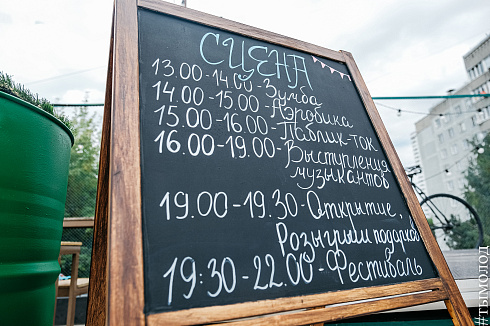 СЦЕНА
13.00-14.00-Зумба
14.00-15.00-Аэробика
15.00-16.00-Паблик-ток
16.00-19.00-Выступления
музыкантов
19.00-19.30-Открытие,
Розыгрыш подарков
19:30-22.00-Фестиваль
#ТЫМОЛОД